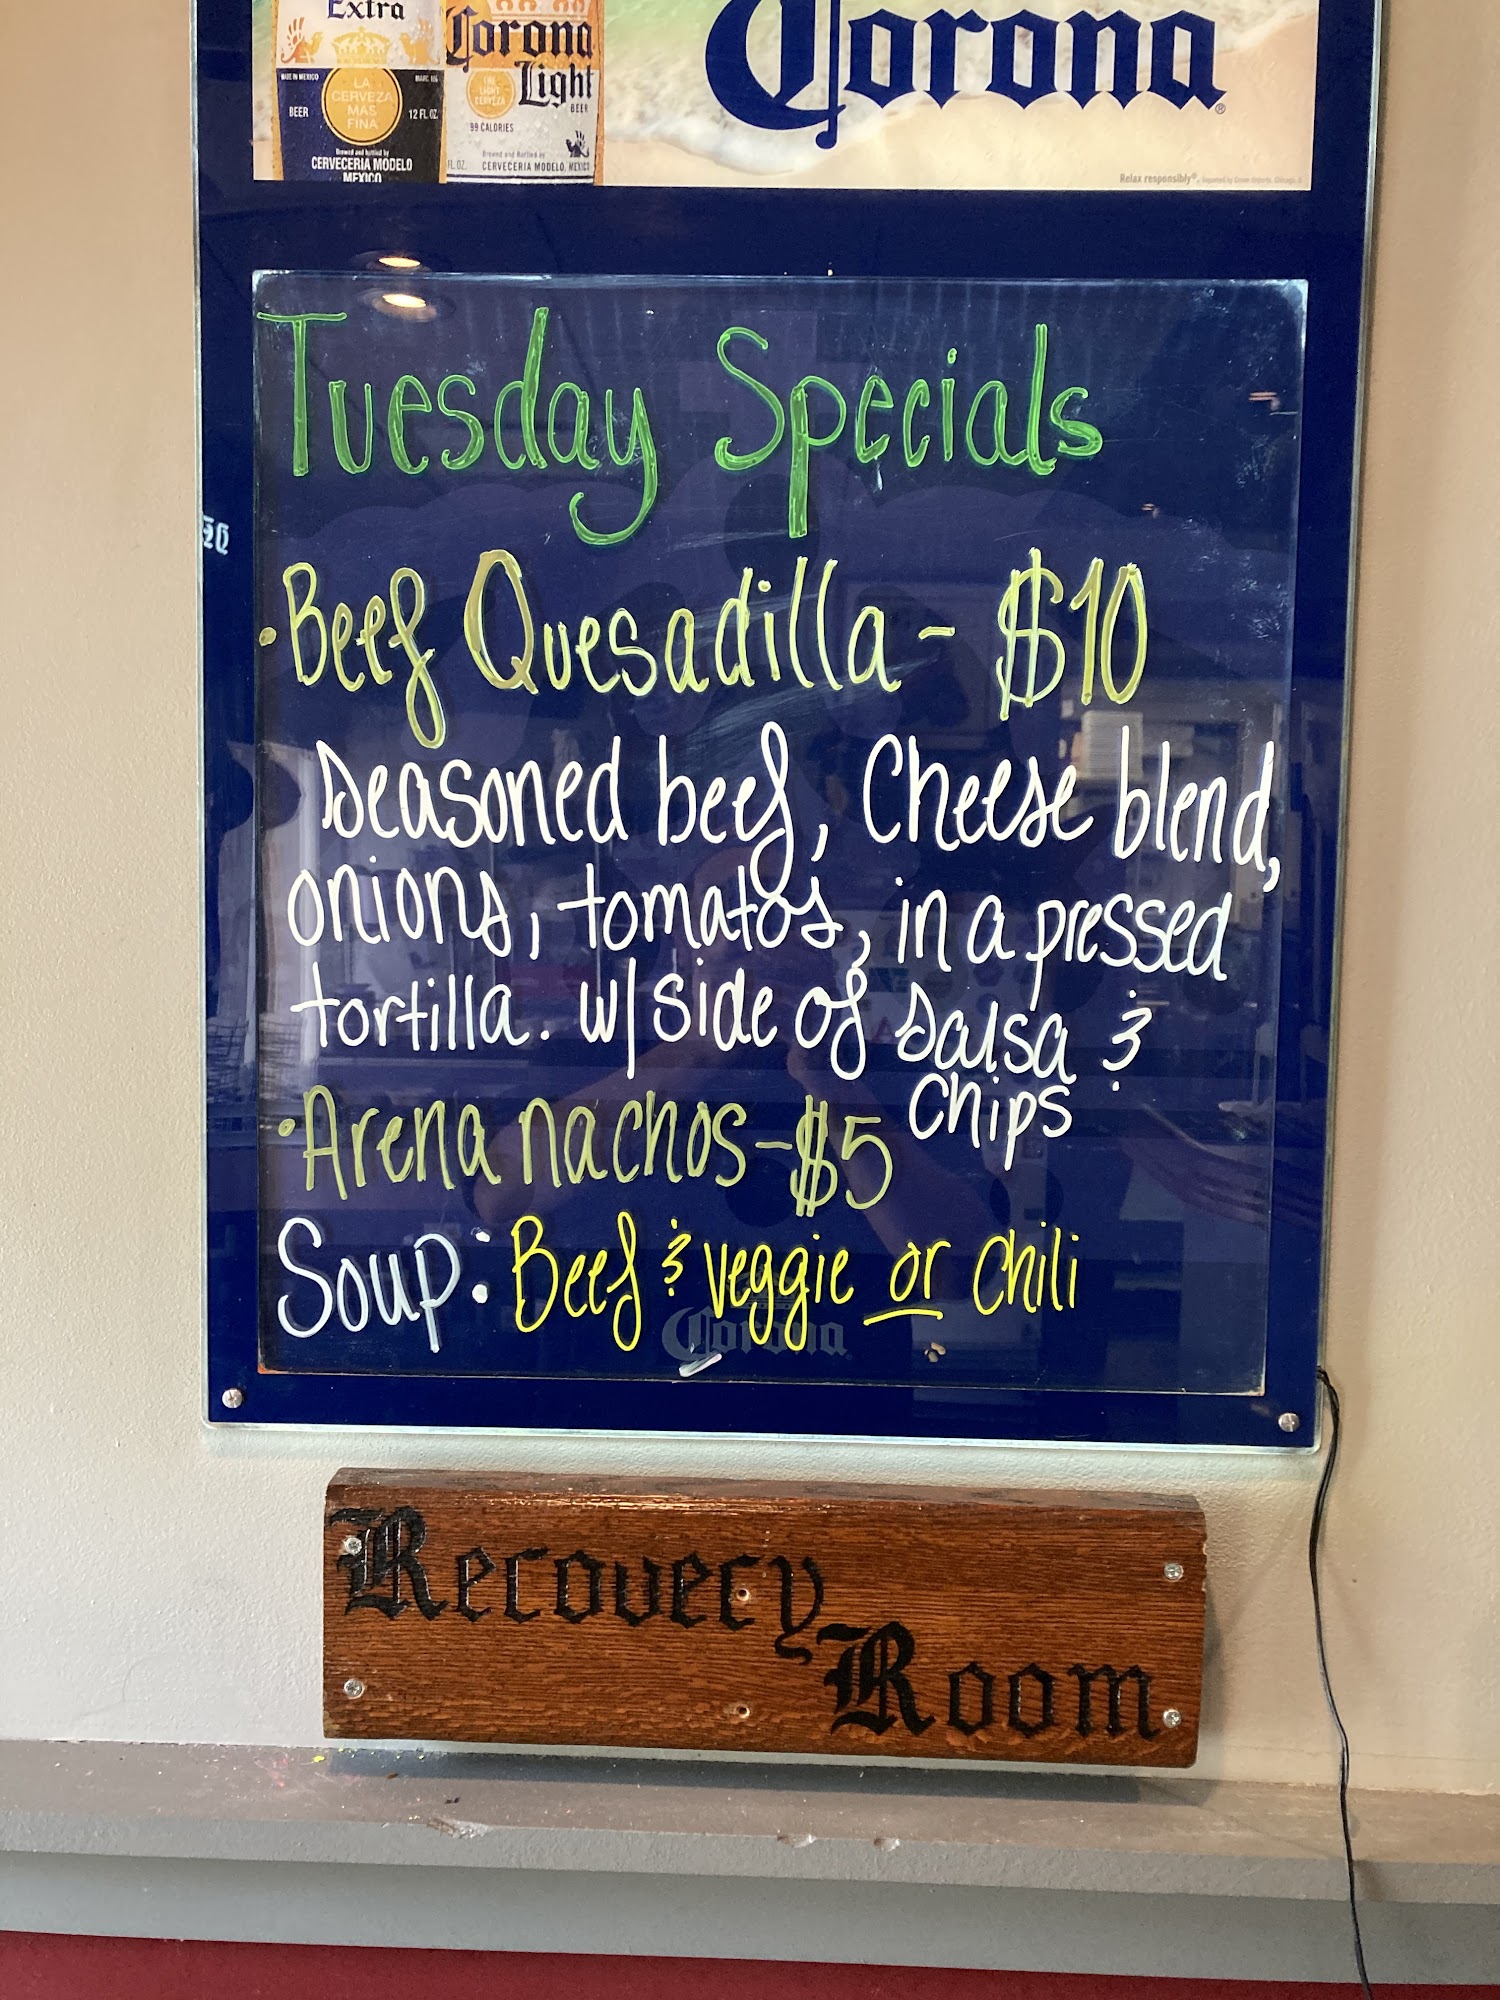 Extra
LA
CERVEZA
MAS
FINA
MADE IN MEXICO
BEER
12 FL. OZ.
Brewed and bottled by
CERVECERIA MODELO
MEXICO
Corona
Light
BEER
99 CALORIES
FL. OZ.
Brewed and Bottled by
CERVECERIA MODELO, MEXICO
Corona®
Relax responsibly®.
Tuesday Specials
·Beef Quesadilla - $10
Seasoned beef, Cheese blend,
onions, tomatos, in a pressed
tortilla. w/ side of salsa &
chips
·Arena nachos - $5
Soup: Beef & veggie or chili
Corona
Recovery
Room